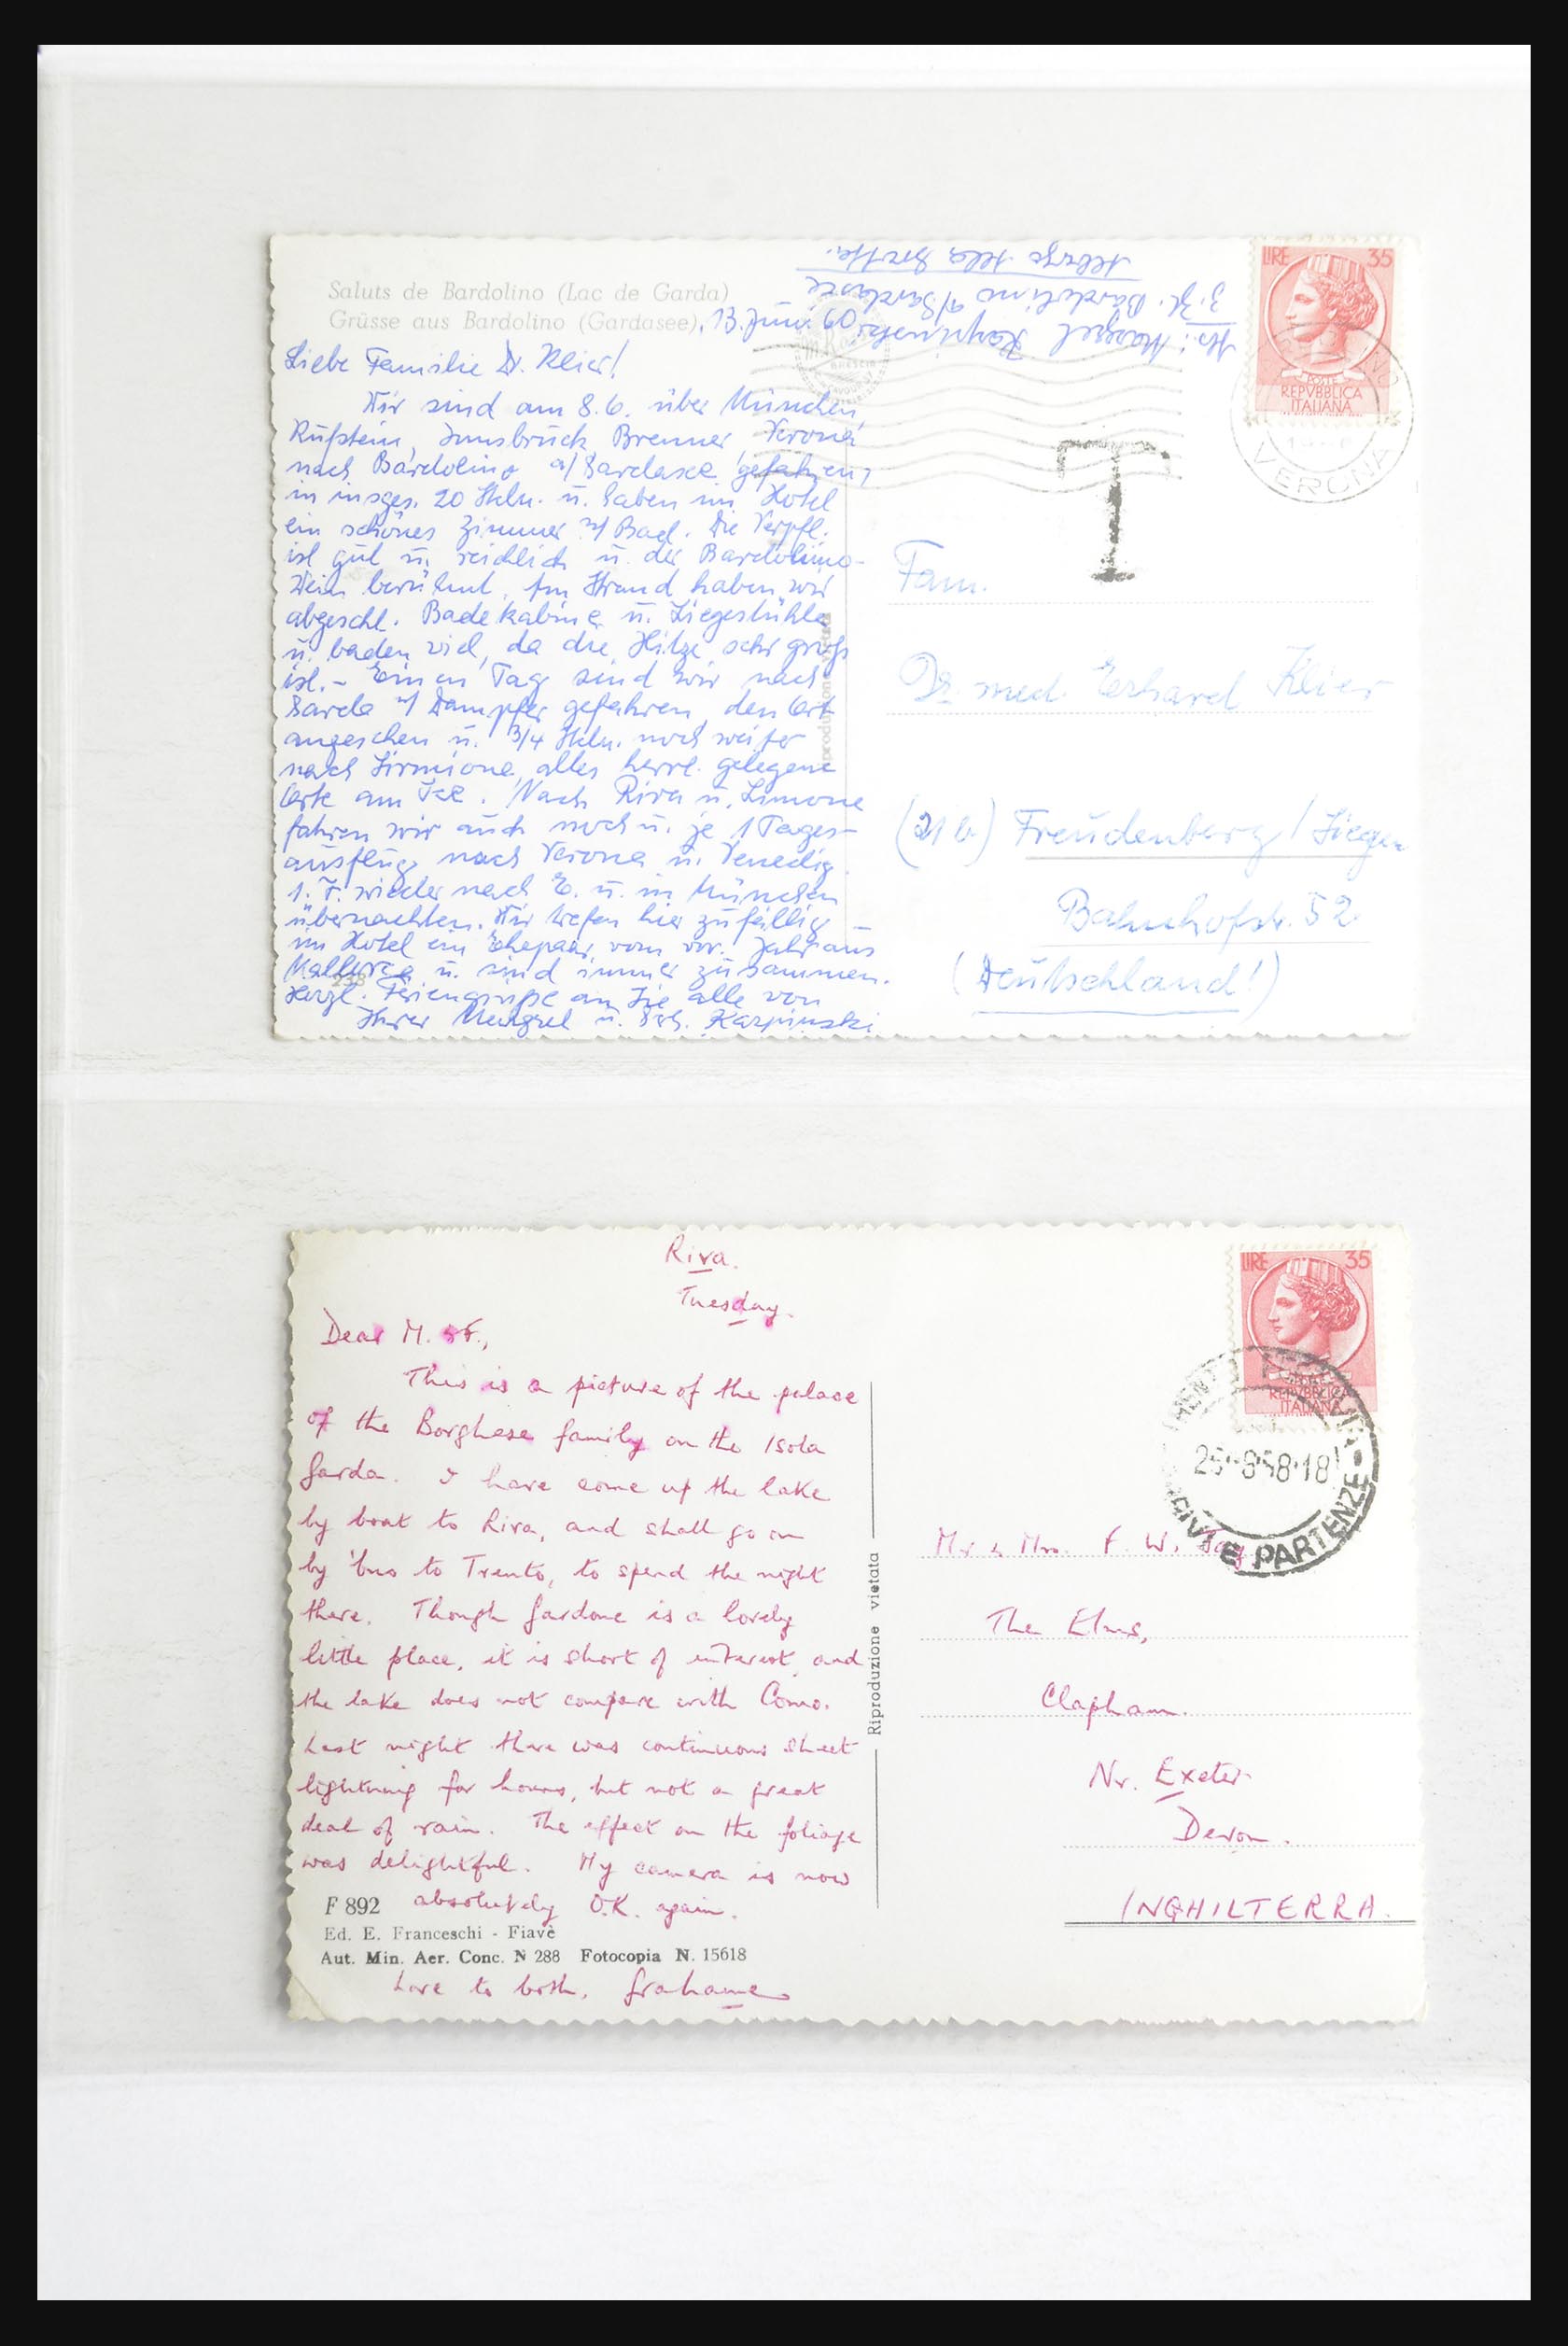 Saluts de Bardolino (Lac de Garda)
Grüsse aus Bardolino (Gardasee), 13. Juni 60
Abs: Margel Karpinski
z. Zt. Bardolino a/Gardasee
Albergo Alla
LIRE 35
POSTE
REPVBBLICA
ITALIANA
VERONA
T
Liebe Familie Dr. Klier!
Wir sind am 8.6. über München
Kufstein, Innsbruck Brenner Verona
nach Bardolino a/Gardasee gefahren,
in insges. 20 Stdn. u. haben im Hotel
ein schönes Zimmer m/ Bad. Die Verpfl.
ist gut u. reichlich u. der Bardolino-
Wein berühmt. Am Strand haben wir
abgeschl. Badekabine u. Liegestühle
u. baden viel, da die Hitze sehr groß
ist. - Einen Tag sind wir nach
Garda m/ Dampfer gefahren, den Ort
angesehen u. 3/4 Stdn. noch weiter
nach Sirmione, alles herrl. gelegene
Orte am See. Nach Riva u. Limone
fahren wir auch noch u. je 1 Tages-
ausflug nach Verona u. Venedig.
1. 7. wieder nach E. u. in München
übernachten. Wir trafen hier zufällig
im Hotel ein Ehepaar vom vor. Jahr aus
Mallorca u. sind immer zusammen.
238
Herzl. Feriengrüße an Sie alle von
Ihrer u. Karpinski
Riproduzione vietata
Fam.
Dr. med. Erhard Klier
(21b) Freudenberg / Siegen
Bahnhofstr. 52
(Deutschland!)
Riva.
Tuesday.
Dear M. & F.,
This is a picture of the palace
of the Borghese family on the Isola
Garda. I have come up the lake
by boat to Riva, and shall go on
by 'bus to Trento, to spend the night
there. Though Gardone is a lovely
little place, it is short of interest, and
the lake does not compare with Como.
Last night there was continuous sheet
lightning for hours, but not a great
deal of rain. The effect on the foliage
was delightful. My camera is now
absolutely O.K. again.
F 892
Ed. E. Franceschi - Fiavè
Aut. Min. Aer. Conc. N 288 Fotocopia N. 15618
Love to both, Grahame
Riproduzione vietata
LIRE 35
POSTE
REPVBBLICA
ITALIANA
25-8-58-18
E PARTENZE
Mr & Mrs. F. W.
The Elms,
Clapham.
Nr. Exeter
Devon.
INGHILTERRA.